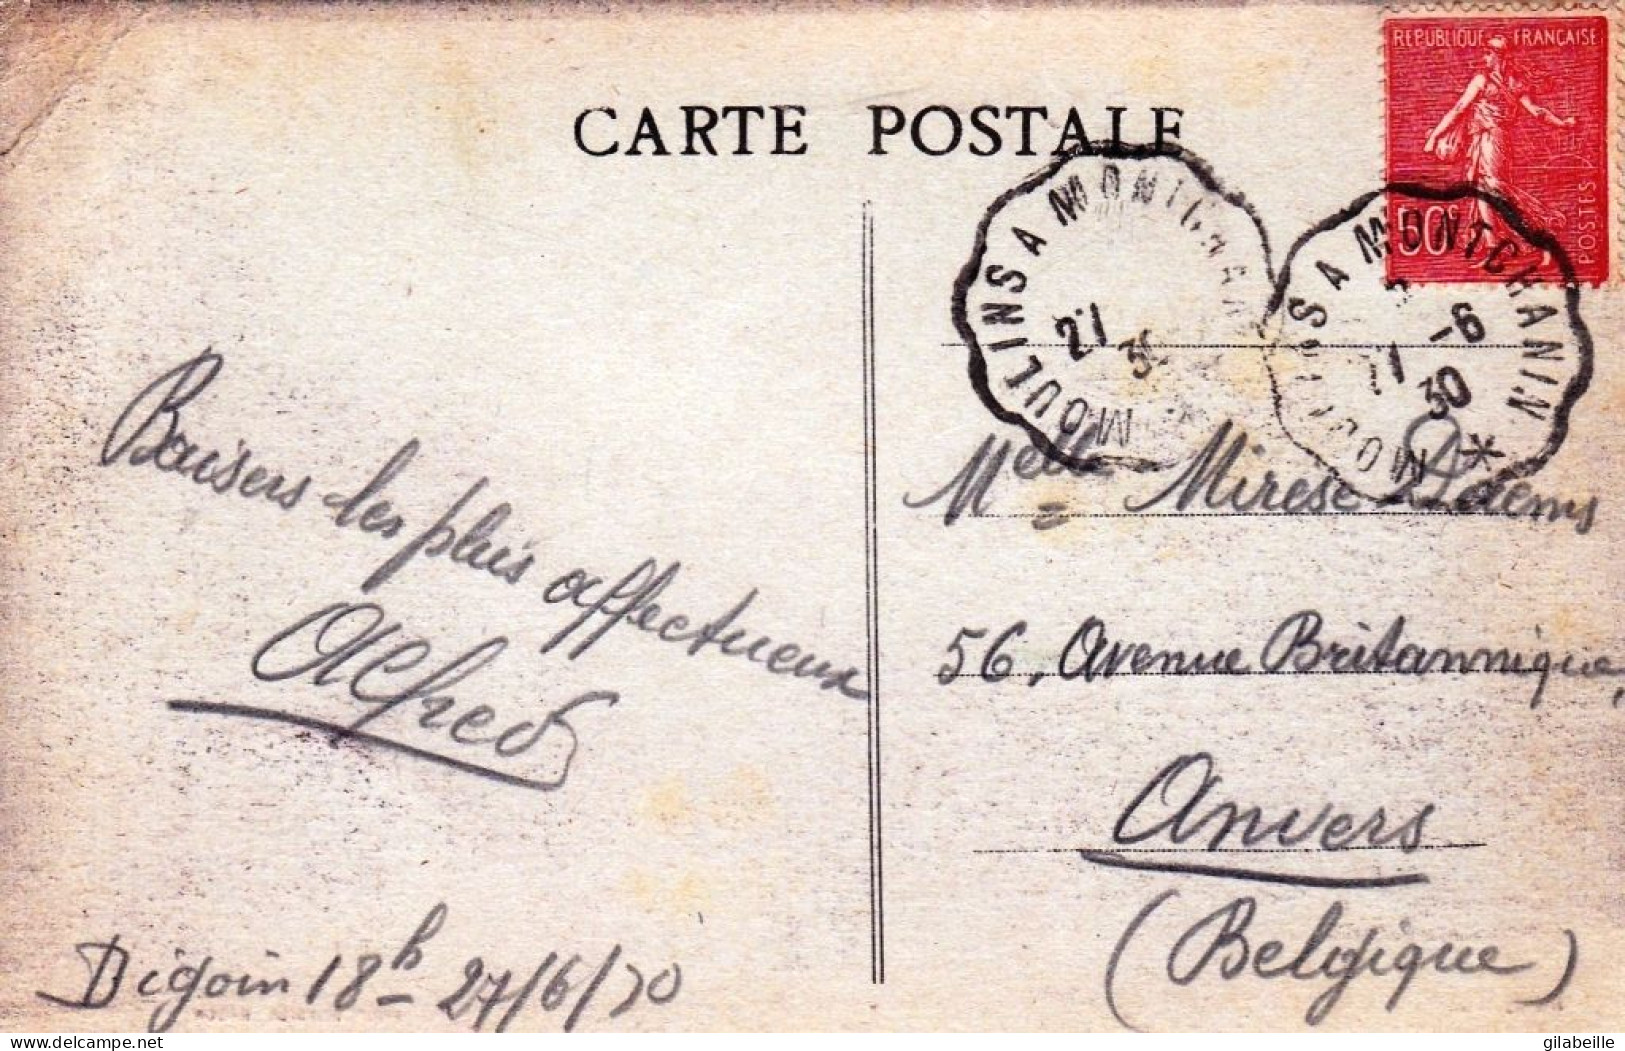 CARTE POSTALE
REPUBLIQUE FRANÇAISE
50c
POSTES
MOULINS A MONTCHANIN
27
30
MOULINS A MONTCHANIN
-6
30
*
Baisers les plus affectueux
Alfred
Digoin 18h - 27/6/30
Melle Mirese Daems
56, Avenue Britannique,
Anvers
(Belgique)
delcampe.net
gilabeille